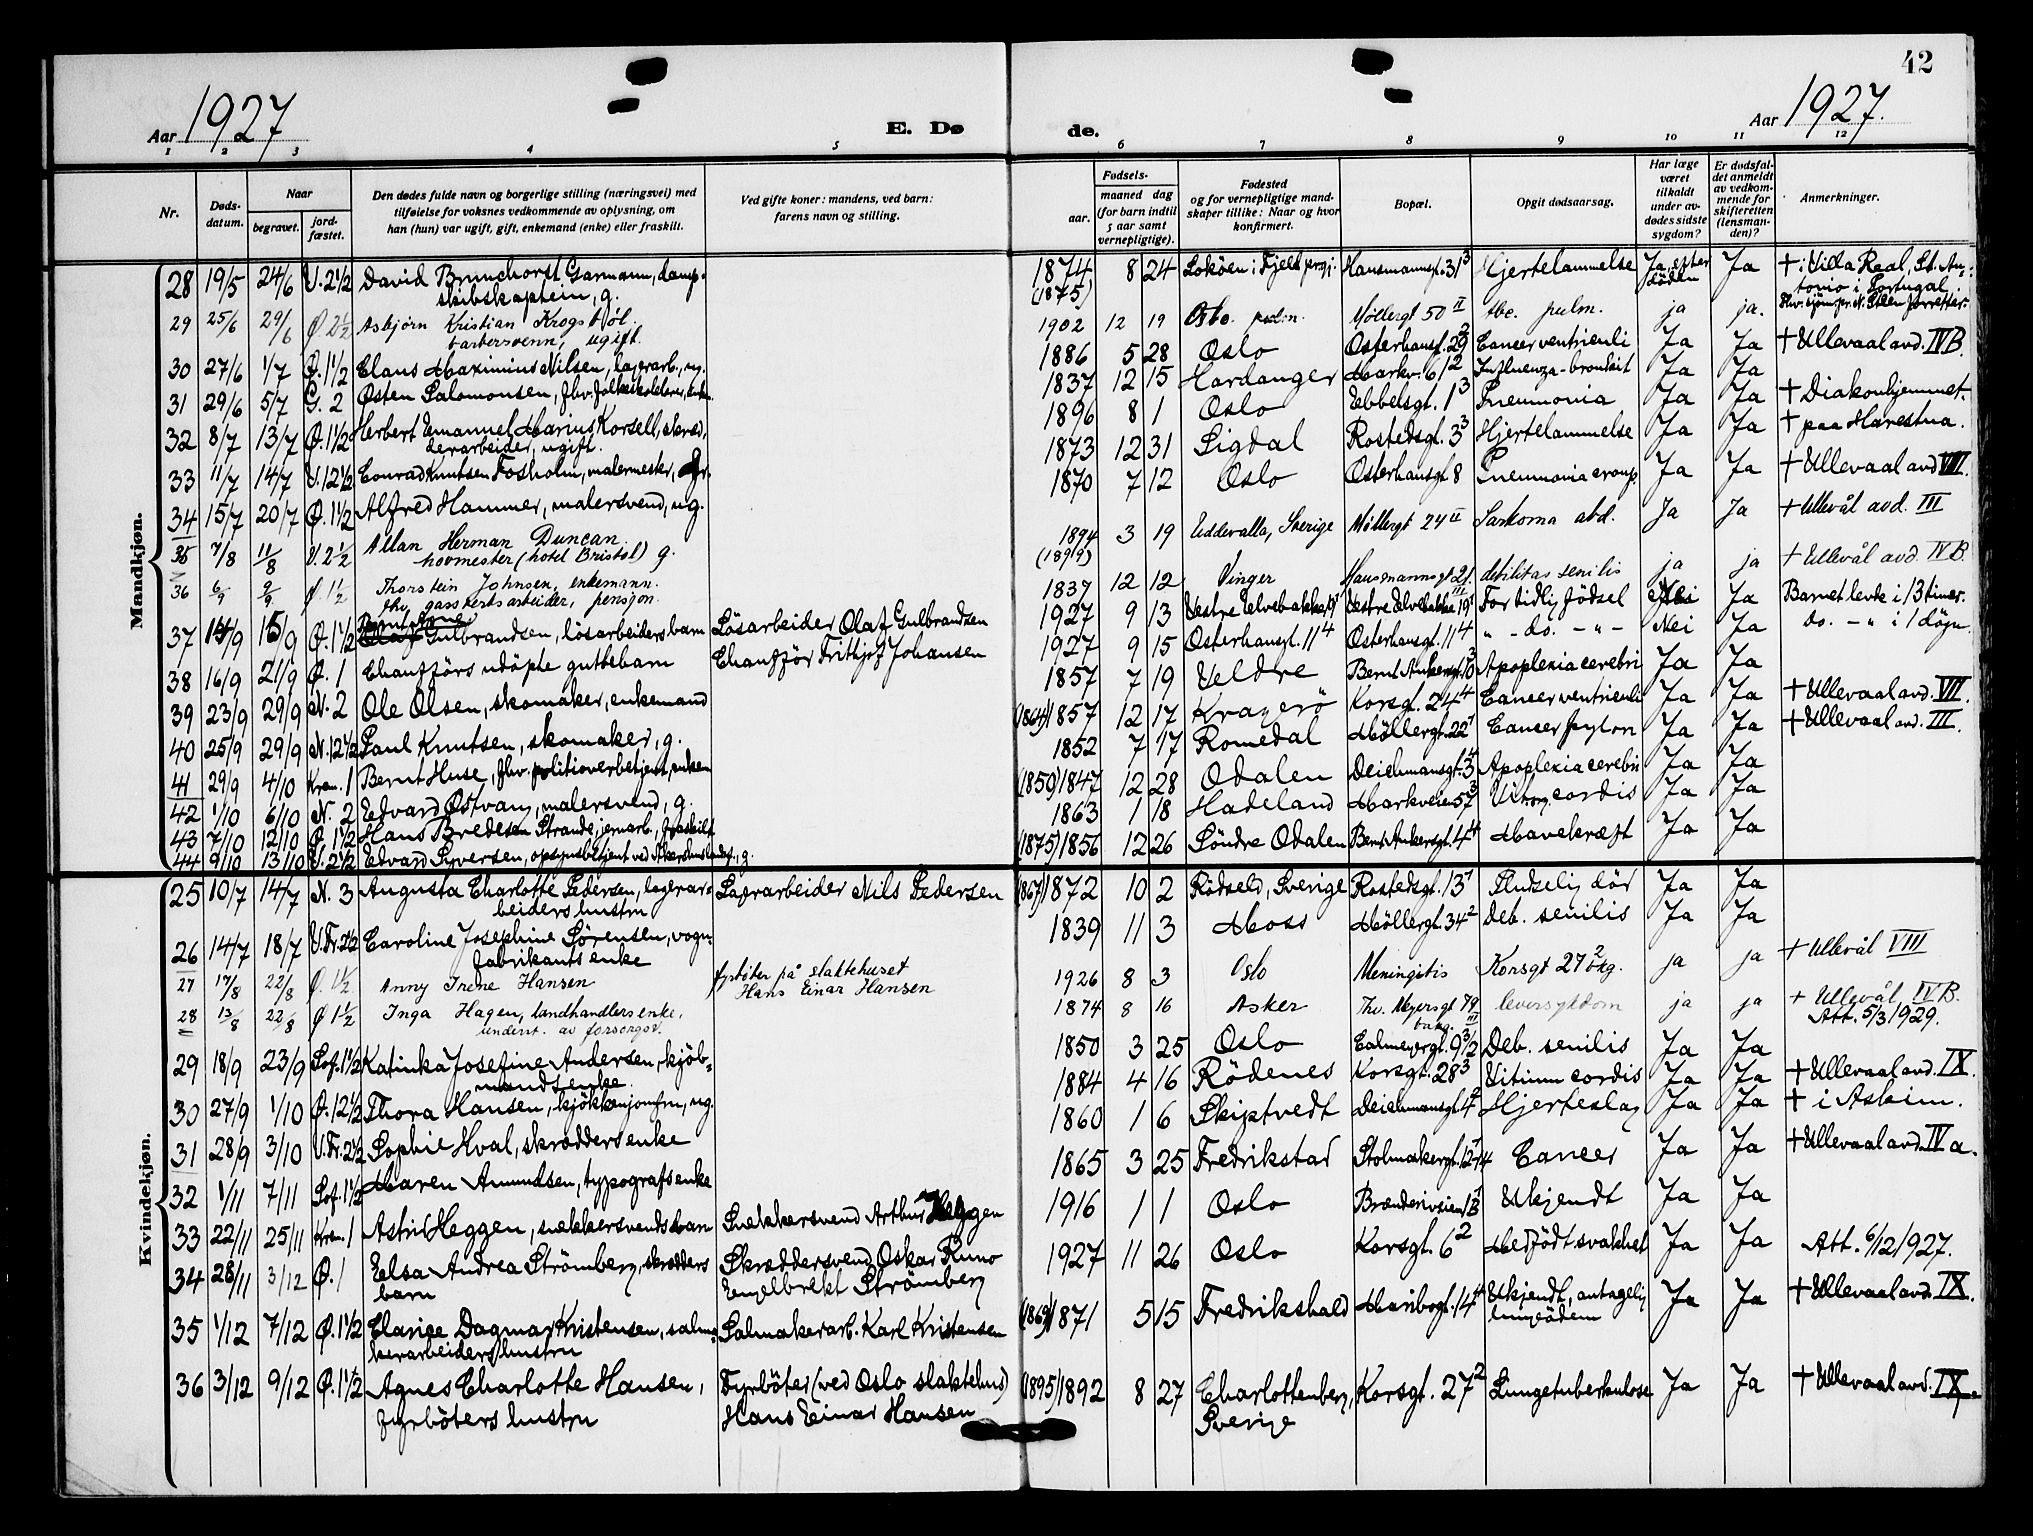 42
Aar 1927
E. Dø
de.
Aar 1927.
1 2 3 4 5 6 7 8 9 10 11 12
Nr.
Døds-
datum.
Naar
begravet.
jord-
fæstet.
Den dødes fulde navn og borgerlige stilling (næringsvei) med
tilføielse for voksnes vedkommende av oplysning, om
han (hun) var ugift, gift, enkemand (enke) eller fraskilt.
Ved gifte koner: mandens, ved barn:
farens navn og stilling.
Fødsels-
aar.
maaned dag
(for barn indtil
5 aar samt
vernepligtige).
Fødested
og for vernepligtige mand-
skaper tillike: Naar og hvor
konfirmert.
Bopæl.
Opgit dødsaarsag.
Har læge
været
tilkaldt
under av-
dødes sidste
sygdom?
Er dødsfal-
det anmeldt
av vedkom-
mende for
skifteretten
(lensman-
den)?
Anmerkninger.
Mandkjøn.
28 19/5 24/6 V. 2 1/2 David Brunchorst Garmann, damp- 1874 8 24 Hausmannsgt. 31 3 Hjertelammelse Ja, efter Ja + i Villa Real, St. An-
skibskaptein, g. (1875) döden tonio i Portugal
29 25/6 29/6 Ø 2 1/2 Asbjørn Kristian Krogstøl. 1902 12 19 Oslo Møllergt 50 II tbc. pulm. ja ja.
barbersvenn, ugift.
30 27/6 1/7 Ø. 1 1/2 Claus Maximius Nilsen, lagerarb., ug. 1886 5 28 Oslo Osterhausgt. 29 2 Cancer ventrienli Ja Ja + Ullevaal avd. IV B.
31 29/6 5/7 G. 2 Østen Salomonsen, fhv. folkeskolelærer, enkem. 1837 12 15 Hardanger Markv. 6 1/2 Influenza-bronkit Ja Ja
32 8/7 13/7 Ø. 1 1/2 Herbert Emanuel Marius Korsell, skræd- 1896 8 1 Oslo Ebbelsgt. 1 3 Pneumonia Ja Ja + Diakonhjemmet.
derarbeider, ugift.
33 11/7 14/7 V. 12 1/2 Conrad Knutsen Fosholm, malermester, 1873 12 31 Sigdal Rostedsgt. 3 3 Hjertelammelse Ja Ja + paa Harestua.
34 15/7 20/7 Ø. 1 1/2 Alfred Hammer, malersvend, ug. 1870 7 12 Oslo Osterhausgt 8 Pneumonia croup. Ja Ja + Ullevaal avd VIII.
35 7/8 11/8 V. 2 1/2 Allan Herman Duncan. 1894 3 19 Uddevalla, Sverige Møllergt 24 II Sarkoma abd. Ja Ja + Ullevål avd. III
hovmester (hotel Bristol) g. (1899)
36 6/9 9/9 Ø. 1 1/2 Thorstein Johnsen, enkemann. 1837 12 12 Vinger Hausmannsgt 21. III debilitas senilis ja ja + Ullevål avd. IV B.
fhv. gassverksarbeider, pensjon.
37 14/9 15/9 Ø. 1 1/2 Bernt Arne
Gulbrandsen, lösarbeiders barn Lösarbeider Olaf Gulbrandsen 1927 9 13 Vestre Elvebakke Vestre Elvebakke 19 For tidlig födsel Nei Ja Barnet levte i 13 timer.
38 16/9 21/9 Ø. 1 Chaufförs udöpte guttebarn Chauffør Frithjof Johansen 1927 9 15 Osterhausgt. 11 4 Osterhausgt. 11 4 " - do. - " - Nei Ja do. - " i 1 døgn.
39 23/9 29/9 N. 2 Ole Olsen, skomaker, enkemand 1857 7 19 Veldre Bernt Ankersgt. Apoplexia cerebri Ja Ja
40 25/9 29/9 N. 12 1/2 Paul Knutsen, skomaker, g. (1864) 1857 12 17 Kragerö Korsgt. 24 4 Cancer ventrienli Ja Ja + Ullevaal avd. VII.
41 29/9 4/10 Krem. 1 Bernt Huse, fhv. politioverbetjent, enkem 1852 7 17 Romedal Möllergt. 22 1 Cancer pylori Ja Ja + Ullevaal avd. III.
42 1/10 6/10 N. 2 Edvard Østvang, malersvend, g. (1850) 1847 12 28 Odalen Deichmansgt. 3 4 Apoplexia cerebri Ja Ja
43 7/10 12/10 Ø. 1 1/2 Hans Bredesen Strande, jernarb., fraskilt 1863 1 18 Hadeland Markveien 57 3 Vitium cordis Ja Ja
44 9/10 13/10 V. 2 1/2 Edvard Syversen, opsynsbetjent ved Akershus landsf., g. (1875) 1856 12 26 Söndre Odalen Bernt Ankersgt. 4 4 Mavekræft Ja Ja
Kvindekjøn.
25 10/7 14/7 N. 3 Augusta Charlotte Pedersen, lagerar- Lagrarbeider Nils Pedersen (1867) 1872 10 2 Sverige Rostedsgt. 13 1 Pludselig död Ja Ja
beiders hustru
26 14/7 18/7 V. Fr. 2 1/2 Caroline Josephine Sørensen, vogn- 1839 11 3 Moss Möllergt. 34 2 Deb. senilis Ja Ja
fabrikants enke
27 17/8 22/8 Ø. 1 1/2 Anny Irene Hansen fyrbøter på slaktehuset 1926 8 3 Oslo Meningitis Korsgt 27 2 bkg. ja ja + Ullevål VIII
Hans Einar Hansen
28 13/8 22/8 Ø 1 1/2 Inga Hagen, landhandlers enke, 1874 8 16 Asker Thv. Meyersgt 79 III leversykdom ja ja + Ullevål IV B.
underst. av forsorgsv. bakg. Att. 5/3 1929.
29 18/9 23/9 Sof. 1 1/2 Katinka Josefine Andersen, kjöb- 1850 3 25 Oslo Calmeyergt. 9 3/2 Deb. senilis Ja Ja
mandsenke.
30 27/9 1/10 Ø. 12 1/2 Thora Hansen, kjökkenjomfru, ug. 1884 4 16 Rödenes Korsgt. 28 3 Vitium cordis Ja Ja + Ullevaal avd. IX.
31 28/9 3/10 V. Fr. 2 1/2 Sophie Hval, skrædders enke 1860 1 6 Skiptvedt Deichmansgt 4 2 Hjerteslag Ja Ja + i Askim.
32 1/11 7/11 Sof. 1 1/2 Maren Amundsen, typografs enke 1865 3 25 Fredrikstad Stolmakergt. 12 Cancer Ja Ja + Ullevaal avd. IV a.
33 22/11 25/11 Krem. 1 Astrid Heggen, snekkersvends barn Snekkersvend Arthur Heggen 1916 1 1 Oslo Brænderiveien Ukjendt Ja Ja
34 28/11 3/12 Ø. 1 Elsa Andrea Strömberg, skrædders Skræddersvend Oskar Runo 1927 11 26 Oslo Korsgt. 6 2 Medfödt svakhet Ja Ja Att. 6/12 1927.
barn Engelbrekt Strömberg
35 1/12 7/12 Ø. 1 1/2 Clarice Dagmar Kristensen, salma- Salmakerarb. Karl Kristensen (1869) 1871 5 15 Fredrikshald Maribogt. 14 4 Ukjendt, antagelig Ja Ja + Ullevaal avd. IX.
kerarbeiders hustru lungeödem
36 3/12 9/12 Ø. 1 1/2 Agnes Charlotte Hansen, Fyrböter (ved Oslo slaktehus) (1895) 1892 8 27 Charlottenberg, Korsgt. 27 2 Lungetuberkulose Ja Ja + Ullevaal avd. IX
fyrböters hustru Hans Einar Hansen Sverige